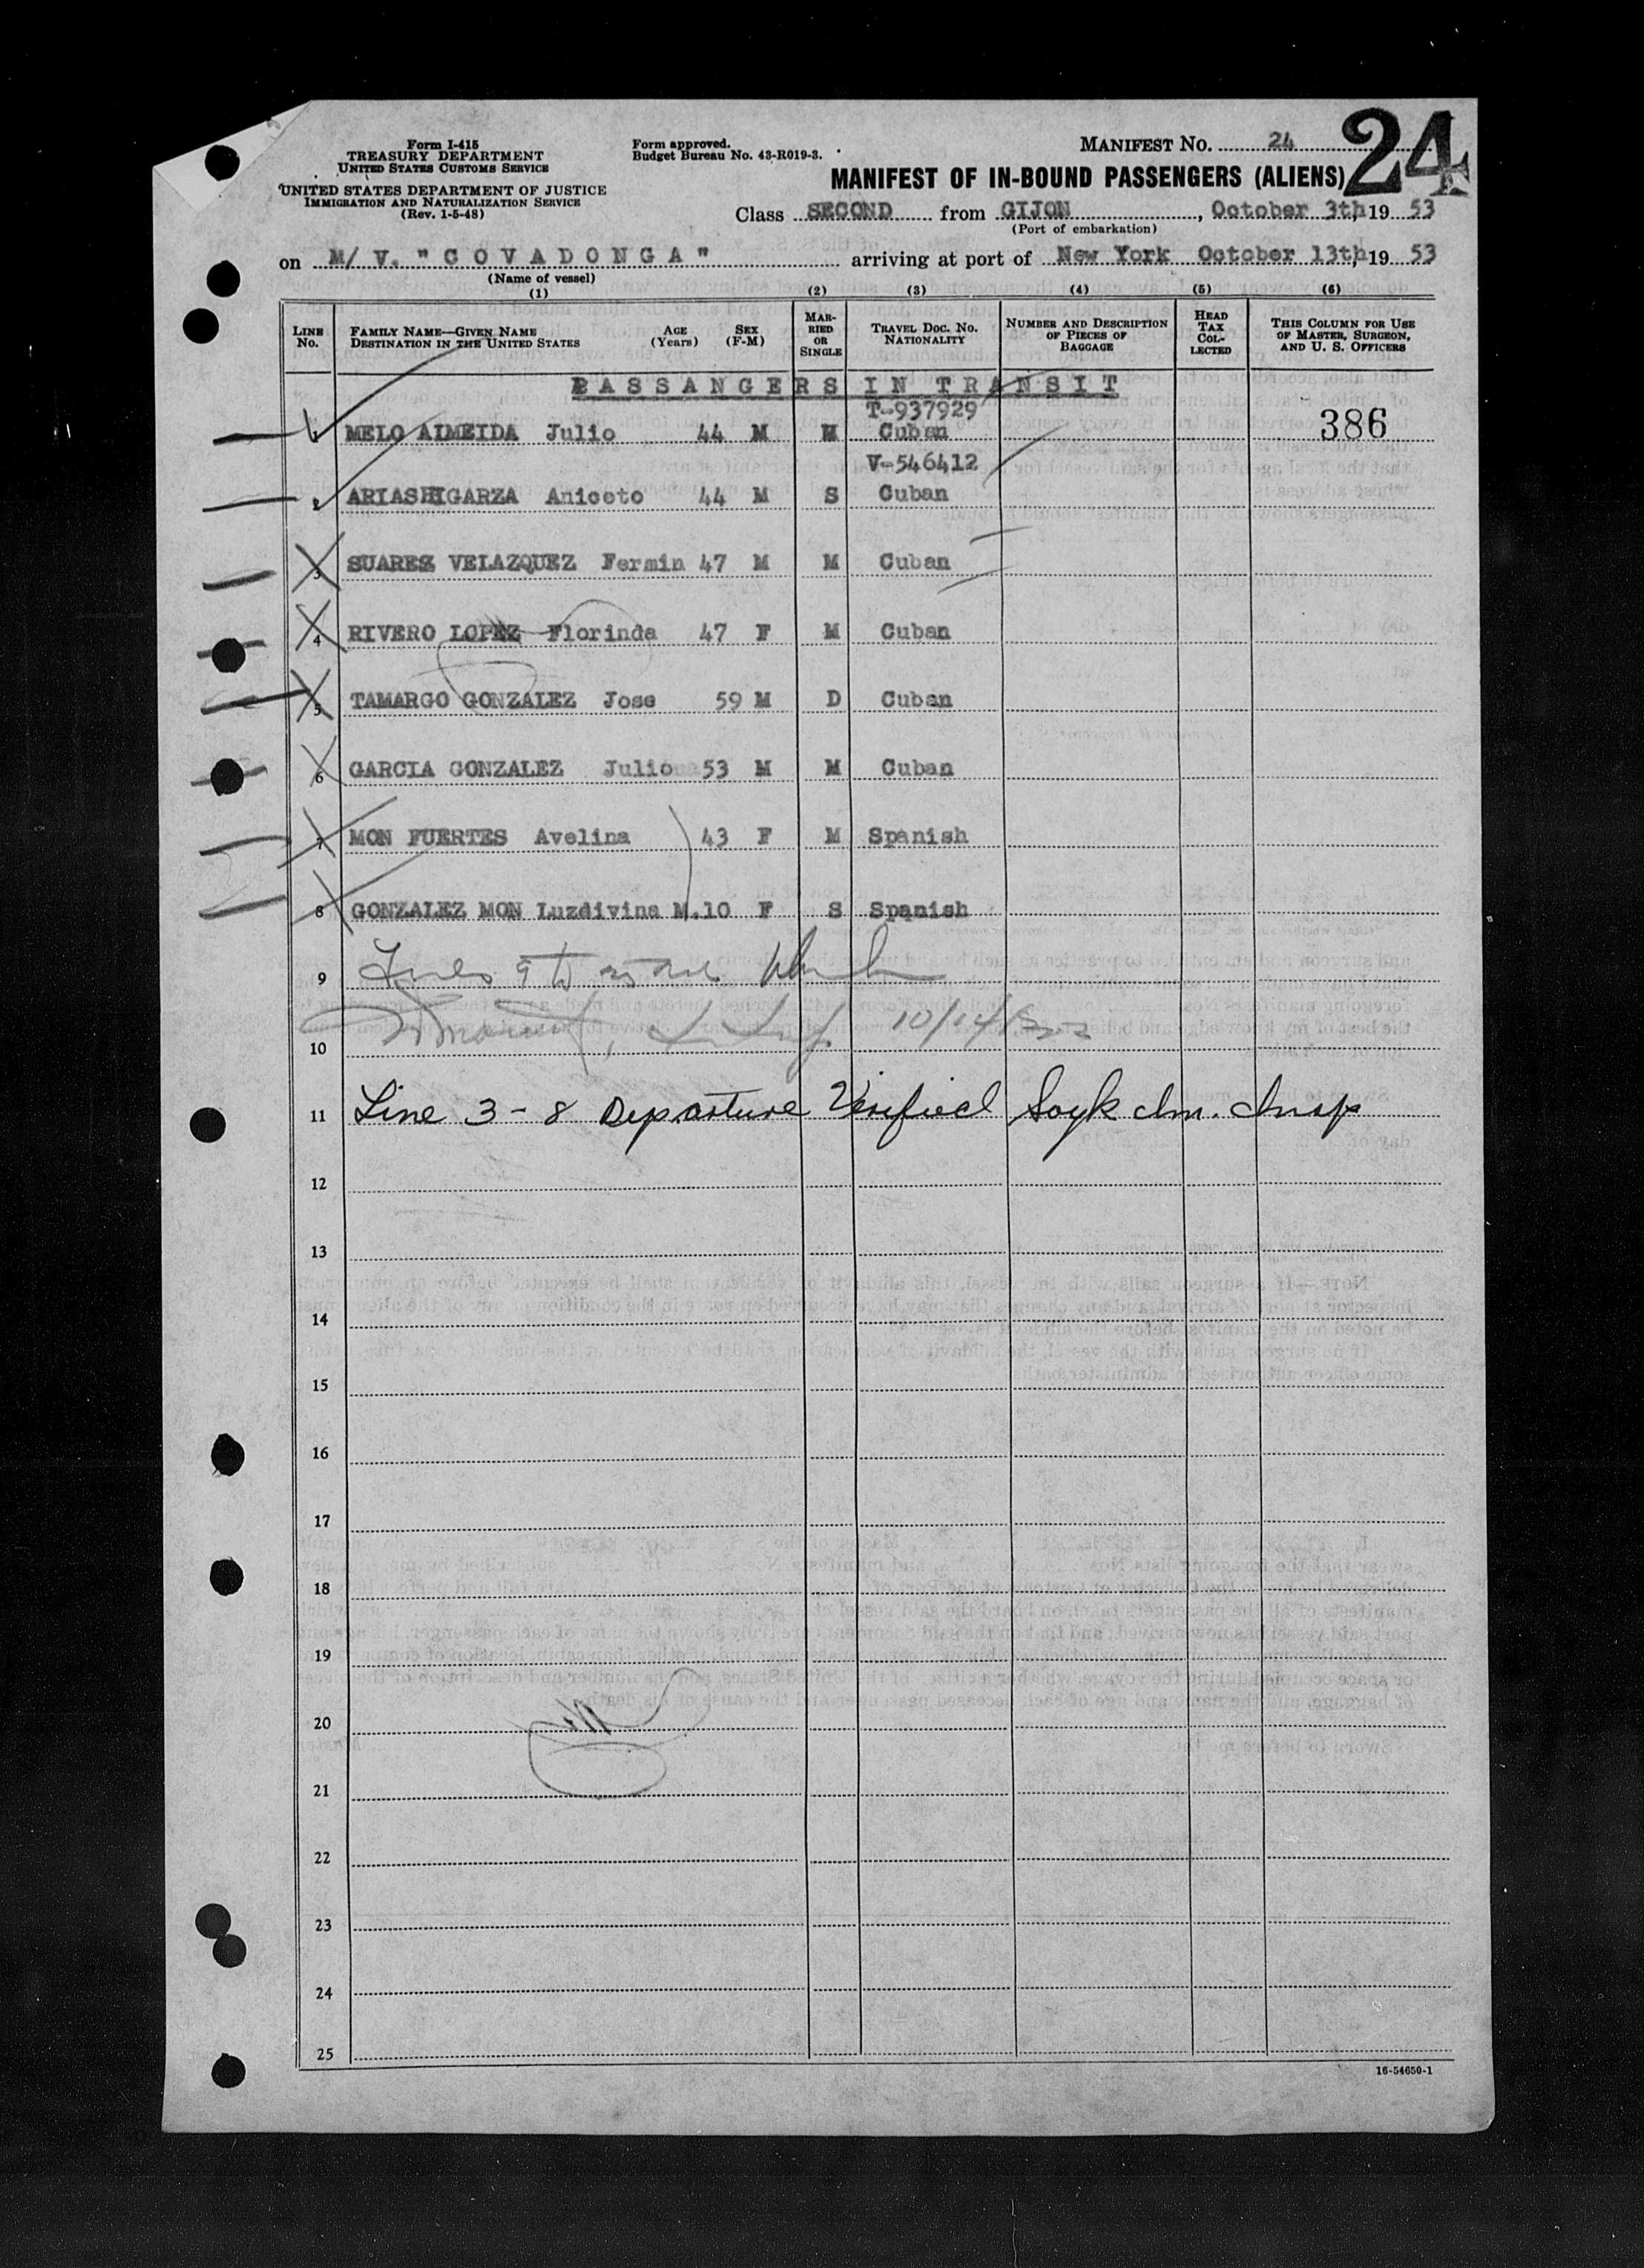 Form I-415
TREASURY DEPARTMENT
UNITED STATES CUSTOMS SERVICE
UNITED STATES DEPARTMENT OF JUSTICE
IMMIGRATION AND NATURALIZATION SERVICE
(Rev. 1-5-48)
Form approved.
Budget Bureau No. 43-R019-3.
MANIFEST NO. 24
24
MANIFEST OF IN-BOUND PASSENGERS (ALIENS)
Class SECOND from GIJON, October 3th, 19 53
(Port of embarkation)
on M/ V. "COVADONGA" arriving at port of New York October 13th, 19 53
(Name of vessel)
(1) (2) (3) (4) (5) (6)
LINE No. FAMILY NAME—GIVEN NAME DESTINATION IN THE UNITED STATES AGE (Years) SEX (F-M) MARRIED OR SINGLE TRAVEL DOC. NO. NATIONALITY NUMBER AND DESCRIPTION OF PIECES OF BAGGAGE HEAD TAX COLLECTED THIS COLUMN FOR USE OF MASTER, SURGEON, AND U. S. OFFICERS
PASSANGERS IN TRANSIT
T-937929
MELO ALMEIDA Julio 44 M M Cuban 386
V-546412
2 Aniceto 44 M S Cuban
3 SUAREZ VELAZQUEZ Fermin 47 M M Cuban
4 RIVERO LOPEZ Florinda 47 F M Cuban
5 TAMARGO GONZALEZ Jose 59 M D Cuban
6 GARCIA GONZALEZ Julio 53 M M Cuban
7 MON FUERTES Avelina 43 F M Spanish
8 GONZALEZ MON Luzdivina M. 10 F S Spanish
9
10 10/14/
11 Line 3 - 8 Departure Verified Imm. Insp
12
13
14
15
16
17
18
19
20
21
22
23
24
25
16-54650-1